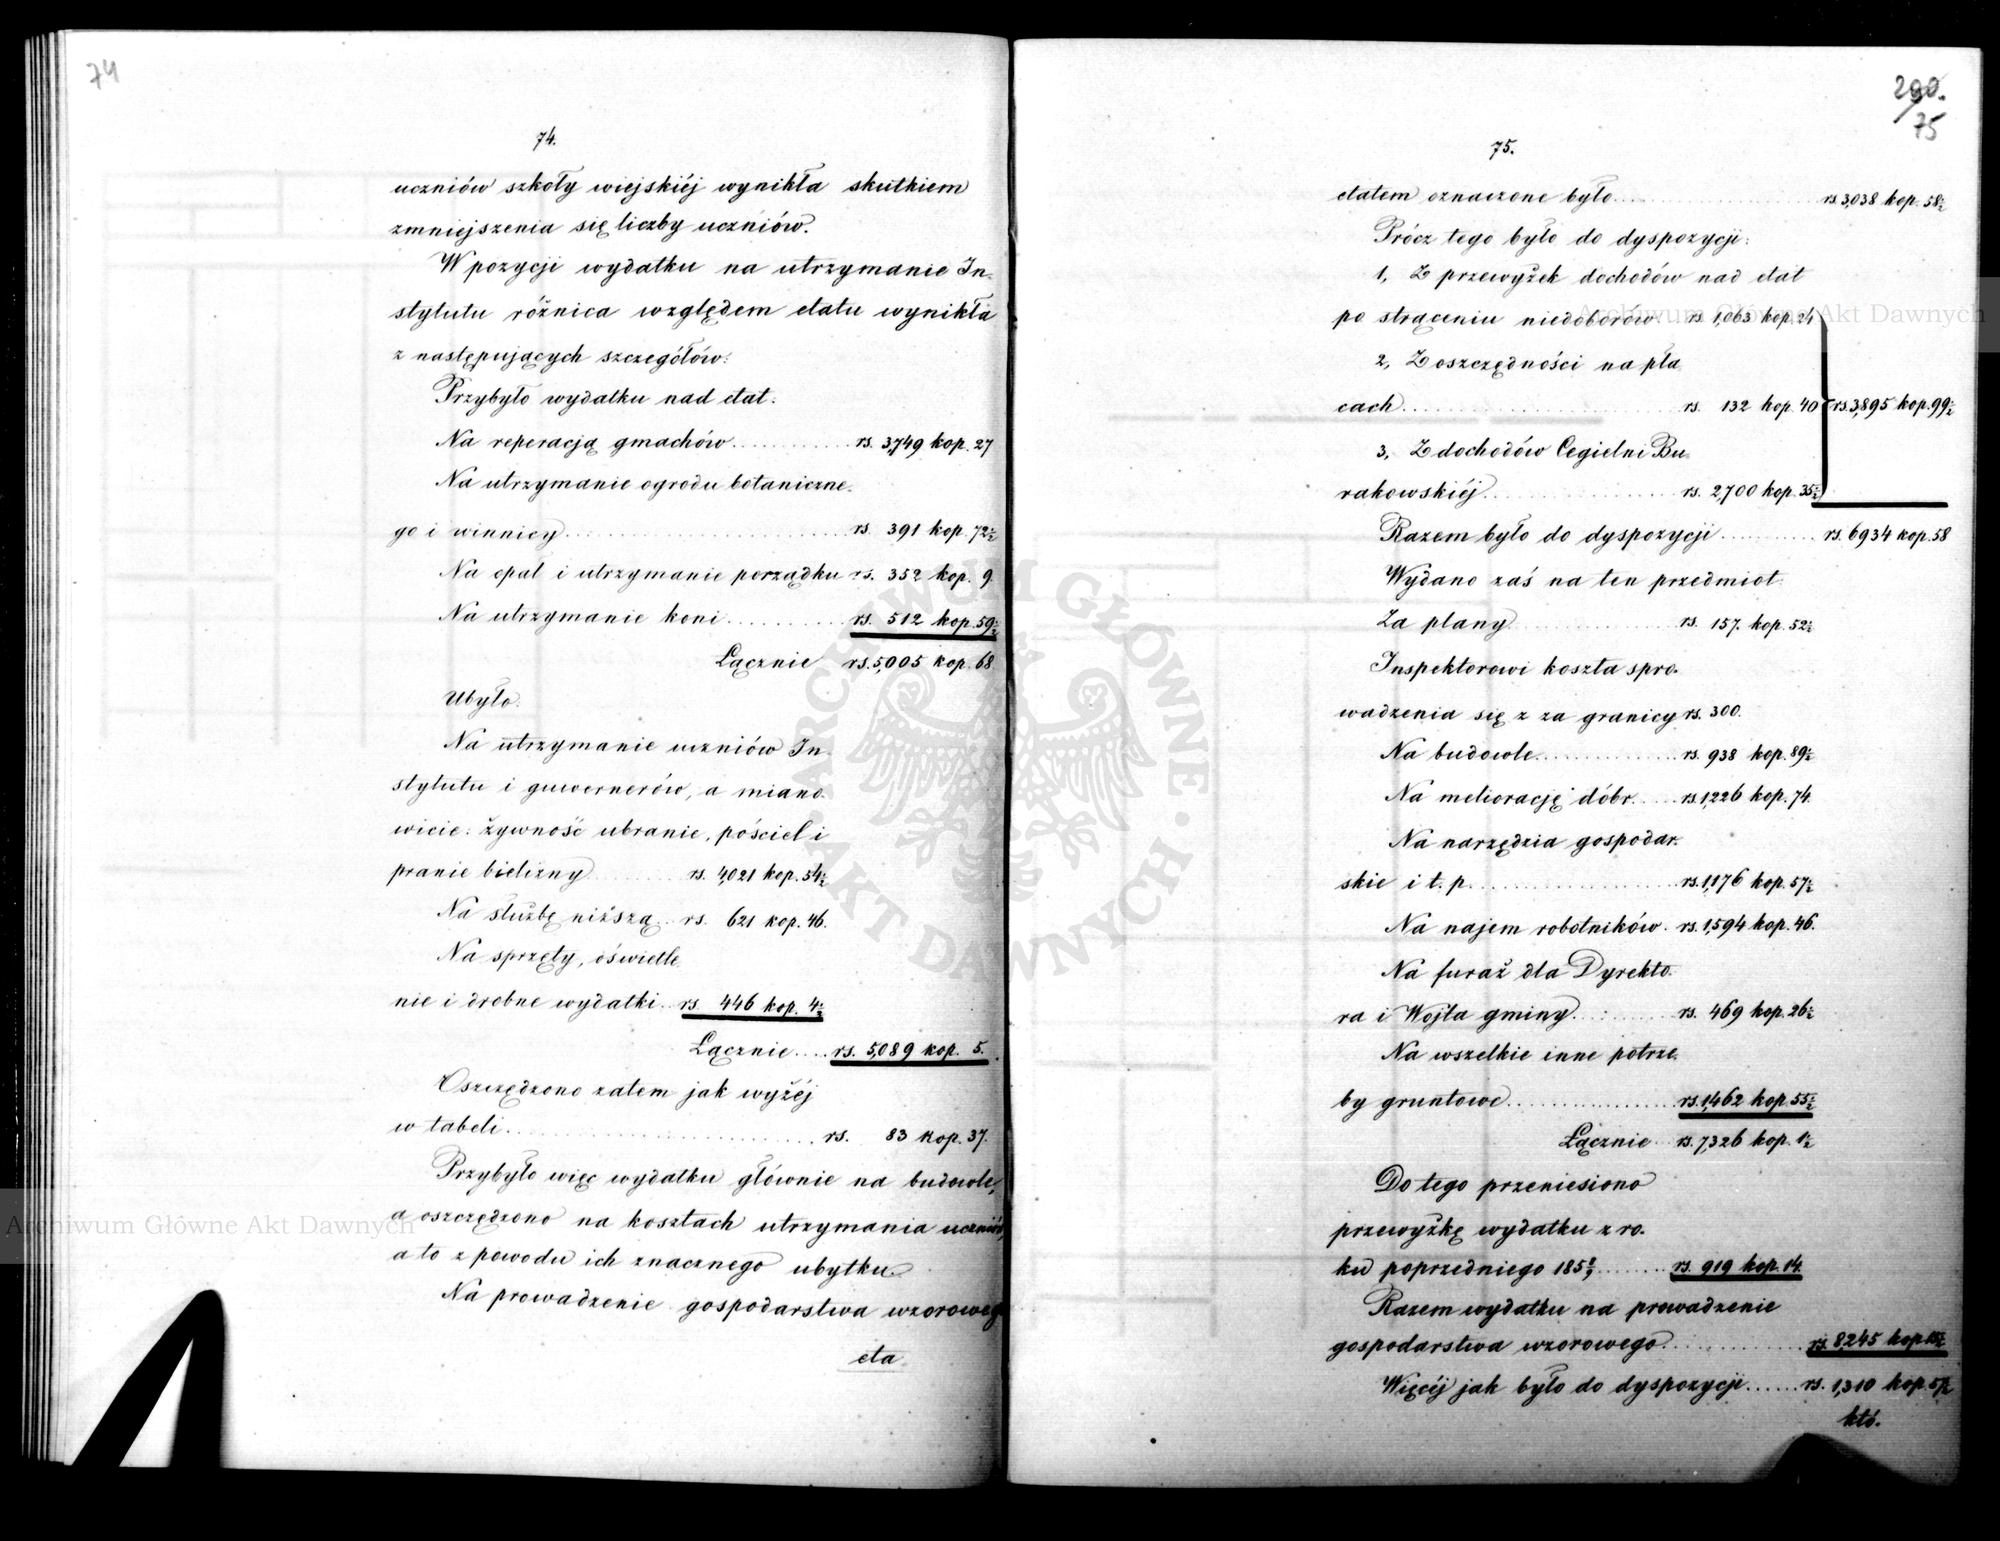 74
74.
uczniów szkoły wiejskiéj wynikła skutkiem
zmniejszenia się liczby uczniów.
W pozycji wydatku na utrzymanie In-
stytutu różnica względem etatu wynikła
z następujących szczegółów:
Przybyło wydatku nad etat:
Na reperacją gmachów rs. 3,749 kop. 27
Na utrzymanie ogrodu botaniczne-
go i winnicy rs. 391 kop. 72½
Na opał i utrzymanie porządku rs. 352 kop. 9.
Na utrzymanie koni rs. 512 kop. 59½
Łącznie rs. 5,005 kop. 68
Ubyło:
Na utrzymanie uczniów In-
stytutu i guwernerów, a miano-
wicie: żywność ubranie, pościel i
pranie bielizny rs. 4,021 kop. 54½
Na służbę niższą rs. 621 kop. 46.
Na sprzęty, oświetle-
nie i drobne wydatki rs 446 kop. 4½
Łącznie rs. 5,089 kop. 5.
Oszczędzono zatem jak wyżéj
w tabeli rs. 83 kop. 37.
Przybyło więc wydatku głównie na budowle,
a oszczędzono na kosztach utrzymania uczniów,
a to z powodu ich znacznego ubytku.
Na prowadzenie gospodarstwa wzorowego
eta
290.
75
75.
etatem oznaczone było rs 3,038 kop. 58½
Prócz tego było do dyspozycji:
1, Z przewyżek dochodów nad etat
po strąceniu niedoborów rs 1,063 kop. 24
2, Z oszczędności na pła
cach rs. 132 kop. 40 rs. 3,895 kop. 99½
3, Z dochodów Cegielni Bu-
rakowskiéj rs. 2,700 kop. 35½
Razem było do dyspozycji rs. 6934 kop. 58
Wydano zaś na ten przedmiot
Za plany rs. 157. kop. 52½
Inspektorowi koszta spro-
wadzenia się z za granicy rs. 300.
Na budowle rs. 938 kop. 89½
Na meliorację dóbr rs 1,226 kop. 74.
Na narzędzia gospodar-
skie i t. p. rs. 1,176 kop. 57½
Na najem robotników rs. 1,594 kop. 46.
Na furaż dla Dyrekto-
ra i Wojta gminy rs. 469 kop. 26½
Na wszelkie inne potrze-
by gruntowe rs. 1,462 kop 55½
Łącznie rs. 7,326 kop. 1½
Do tego przeniesiono
przewyżkę wydatku z ro-
ku poprzedniego 185⁸/₉ rs. 919 kop. 14.
Razem wydatku na prowadzenie
gospodarstwa wzorowego rs. 8,245 kop. 15½
Więcéj jak było do dyspozycji rs. 1,310 kop. 57½
któ-
Archiwum Główne Akt Dawnych
Archiwum Główne Akt Dawnych
ARCHIWUM GŁÓWNE • AKT DAWNYCH •